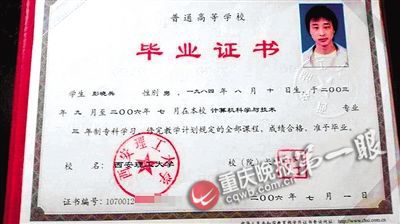 普通高等学校
毕业证书
学生 彭晓兵 性别 男，一九八四年 八 月 十 日生，于二〇〇三
年 九 月至二〇〇六 年 七 月在本校 计算机科学与技术 专业
三 年制专科学习，修完教学计划规定的全部课程，成绩合格，准予毕业。
校 名： 西安理工大学 校（院）长：
证书编号：1070012
二〇〇六年 七 月 一 日
西安理工大学
重庆晚报第一眼
cqwb.com.cn